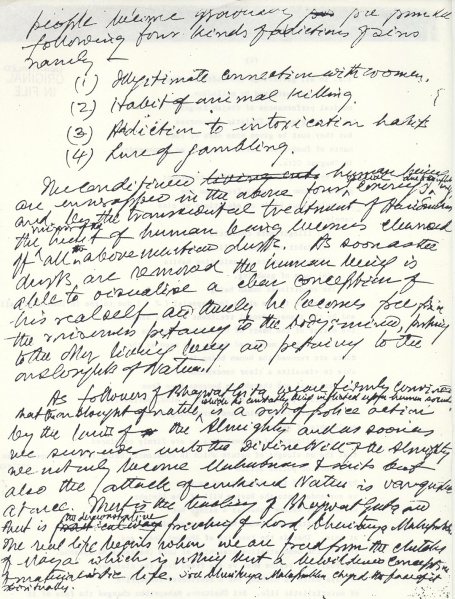 people become
following four kinds of adictions of sins
namely
(1) Illigitimate connection with women.
(2) Habit of animal killing
(3) Addiction to intoxication habits
(4) Lure of gambling.
The conditioned human being
are enwrapped in the above four
and by the transcendental treatment of
the heart of human being becomes cleansed
off all abovemention dusts. As soon as the
dusts are removed the human being is
able to visualise a clear conception of
his real self and thereby he becomes free from
the miseries pertaing to the body & mind, pertaing
to the other living being and pertaing to the
onslaughts of Nature.
As followers of Bhagwat Gita we are firmly convinced
that the onslaught of nature, which is constantly being inflicted upon human society is a sort of police action
by the laws of the Almighty and as soon as
we surrender unto the Divine Will of the Almighty
we not only become but
also the attack of combined Nature is vanquished
at once. That is the teaching of Bhagwat Geeta and
that is the demonstrative of Lord Chaitanya Mahaprabhu
The real life begins when we are freed from the clutches
of Maya which is nothing but a bewildered conception
of materialistic life. Lord Chaitanya Mahaprabhu